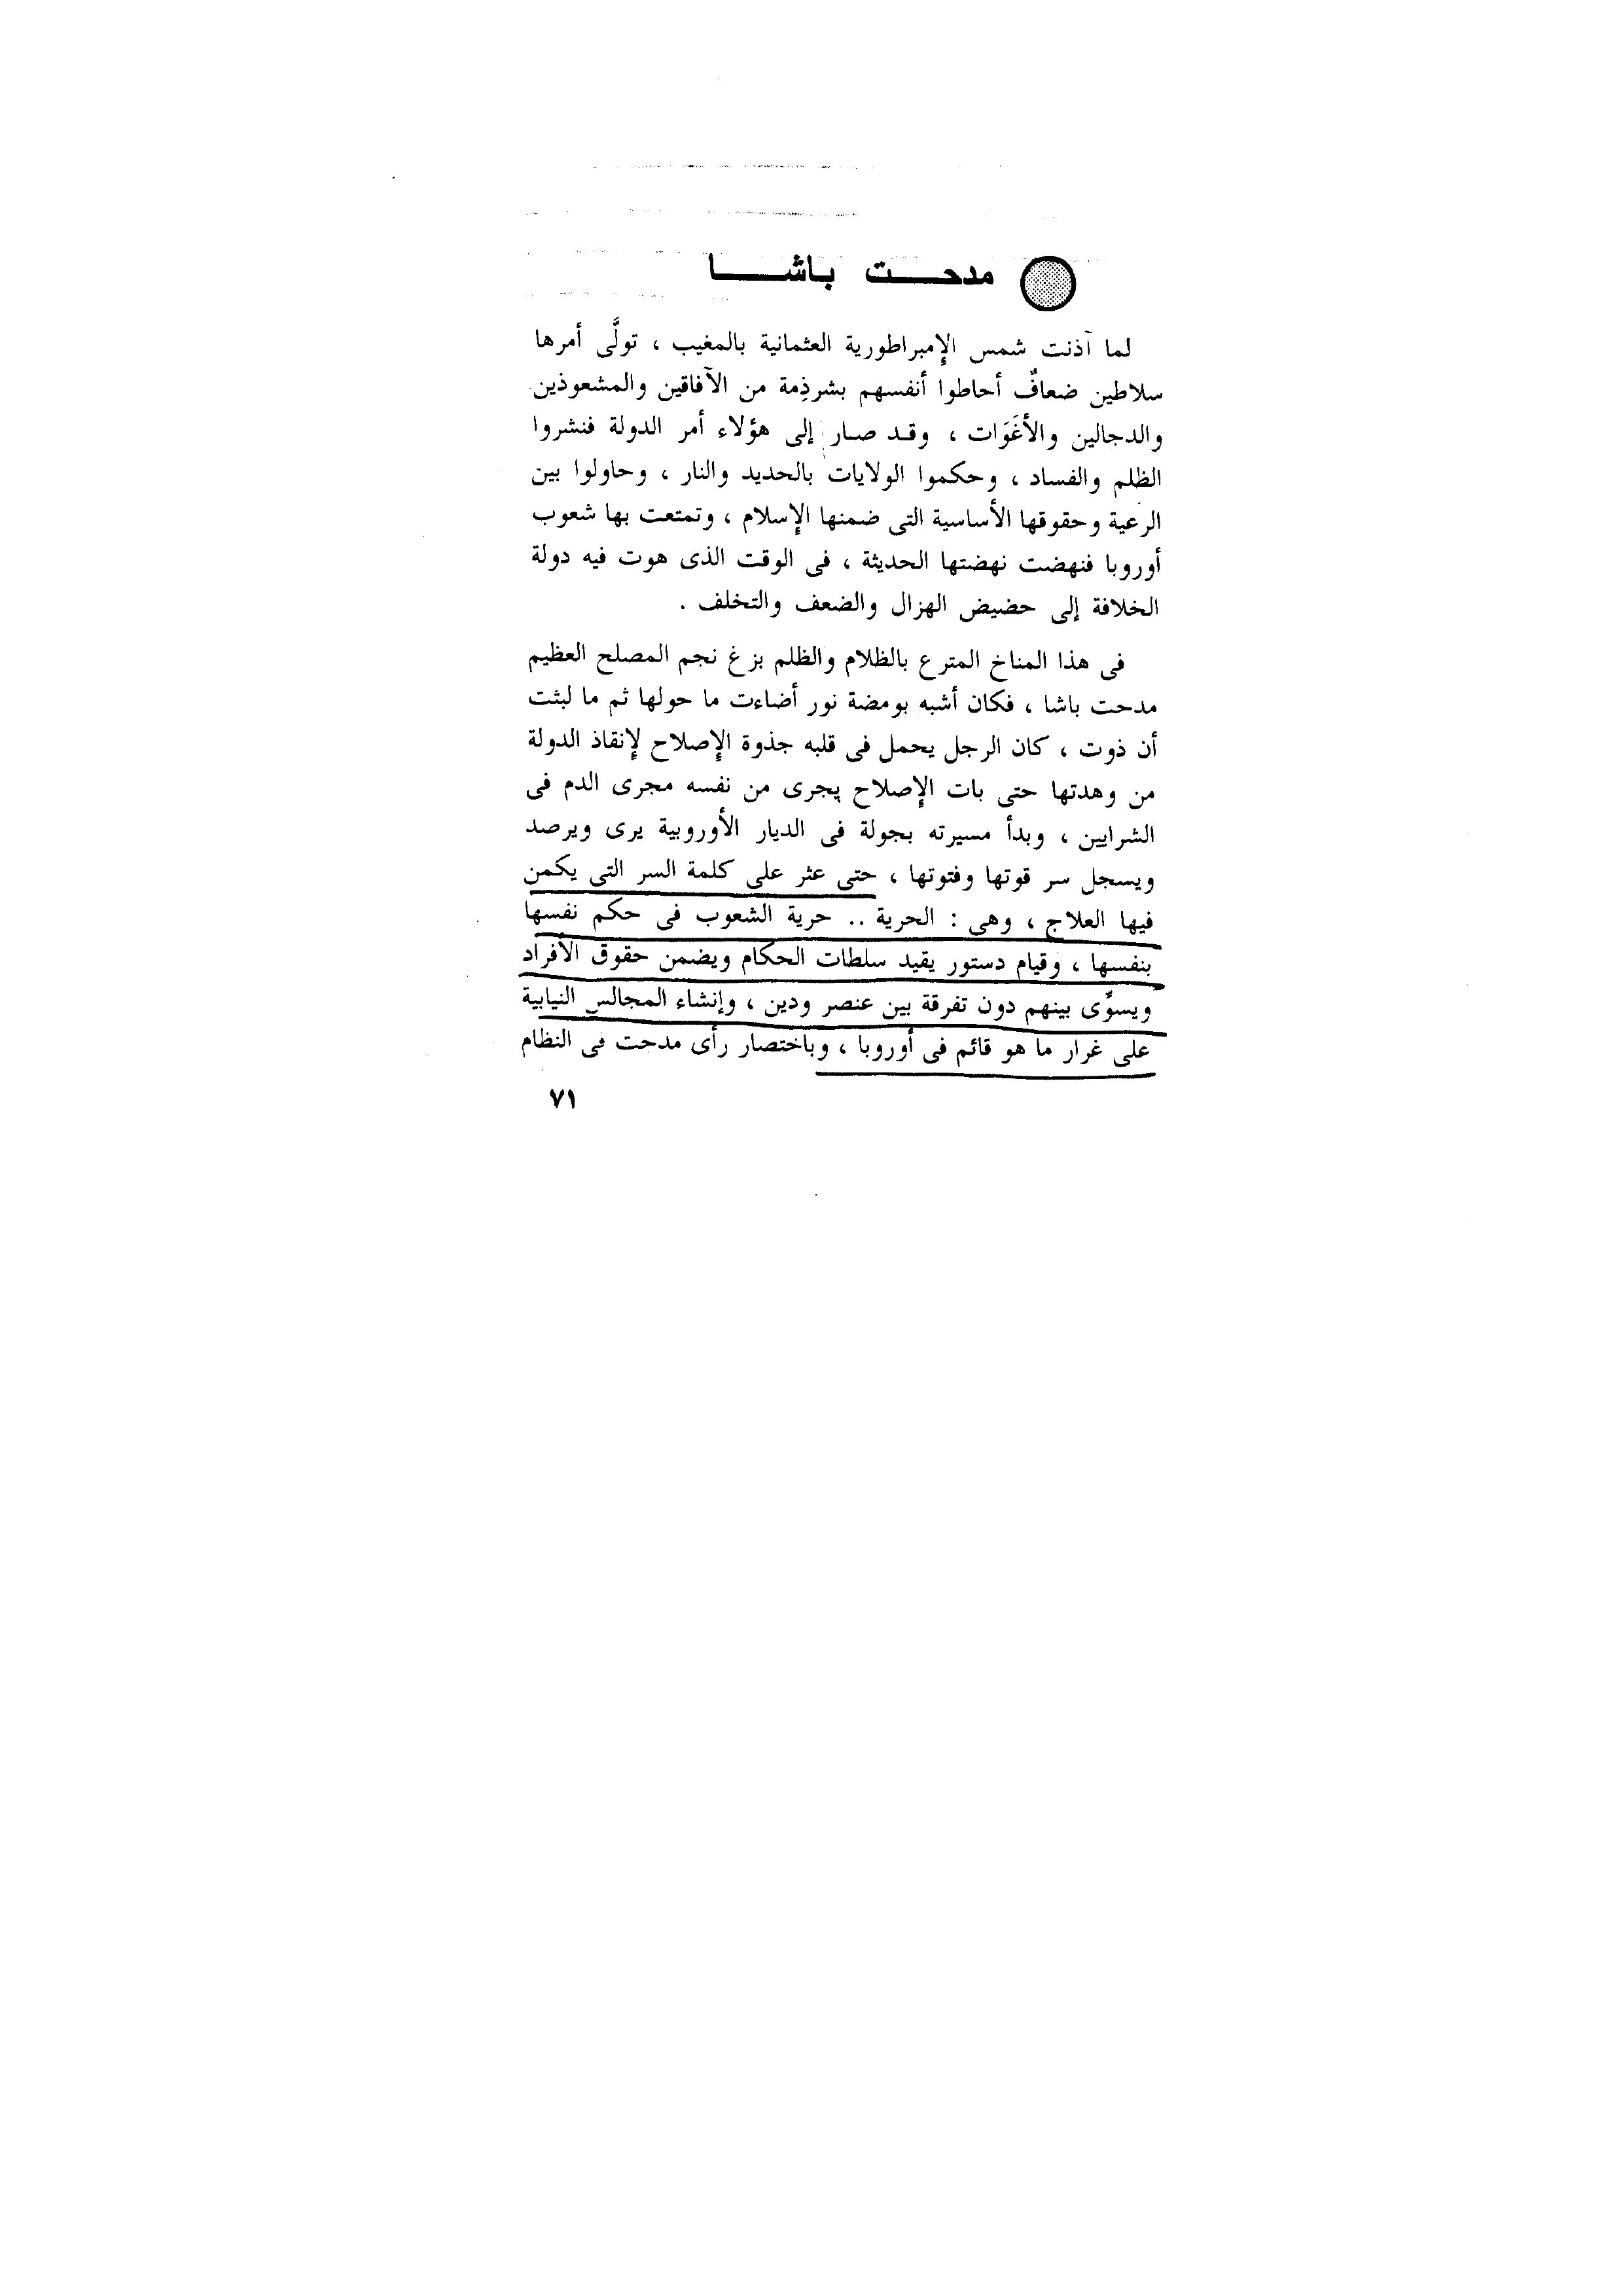 مدحت باشا
لما آذنت شمس الإمبراطورية العثمانية بالمغيب ، تولَّى أمرها
سلاطين ضعافٌ أحاطوا أنفسهم بشرذِمة من الآفاقين والمشعوذين
والدجالين والأغَوَات ، وقد صار إلى هؤلاء أمر الدولة فنشروا
الظلم والفساد ، وحكموا الولايات بالحديد والنار ، وحاولوا بين
الرعية وحقوقها الأساسية التى ضمنها الإسلام ، وتمتعت بها شعوب
أوروبا فنهضت نهضتها الحديثة ، فى الوقت الذى هوت فيه دولة
الخلافة إلى حضيض الهزال والضعف والتخلف .
فى هذا المناخ المترع بالظلام والظلم بزغ نجم المصلح العظيم
مدحت باشا ، فكان أشبه بومضة نور أضاءت ما حولها ثم ما لبثت
أن ذوت ، كان الرجل يحمل فى قلبه جذوة الإصلاح لإنقاذ الدولة
من وهدتها حتى بات الإصلاح يجرى من نفسه مجرى الدم فى
الشرايين ، وبدأ مسيرته بجولة فى الديار الأوروبية يرى ويرصد
ويسجل سر قوتها وفتوتها ، حتى عثر على كلمة السر التى يكمن
فيها العلاج ، وهى : الحرية .. حرية الشعوب فى حكم نفسها
بنفسها ، وقيام دستور يقيد سلطات الحكام ويضمن حقوق الأفراد
ويسوِّى بينهم دون تفرقة بين عنصر ودين ، وإنشاء المجالس النيابية
على غرار ما هو قائم فى أوروبا ، وباختصار رأى مدحت فى النظام
٧١